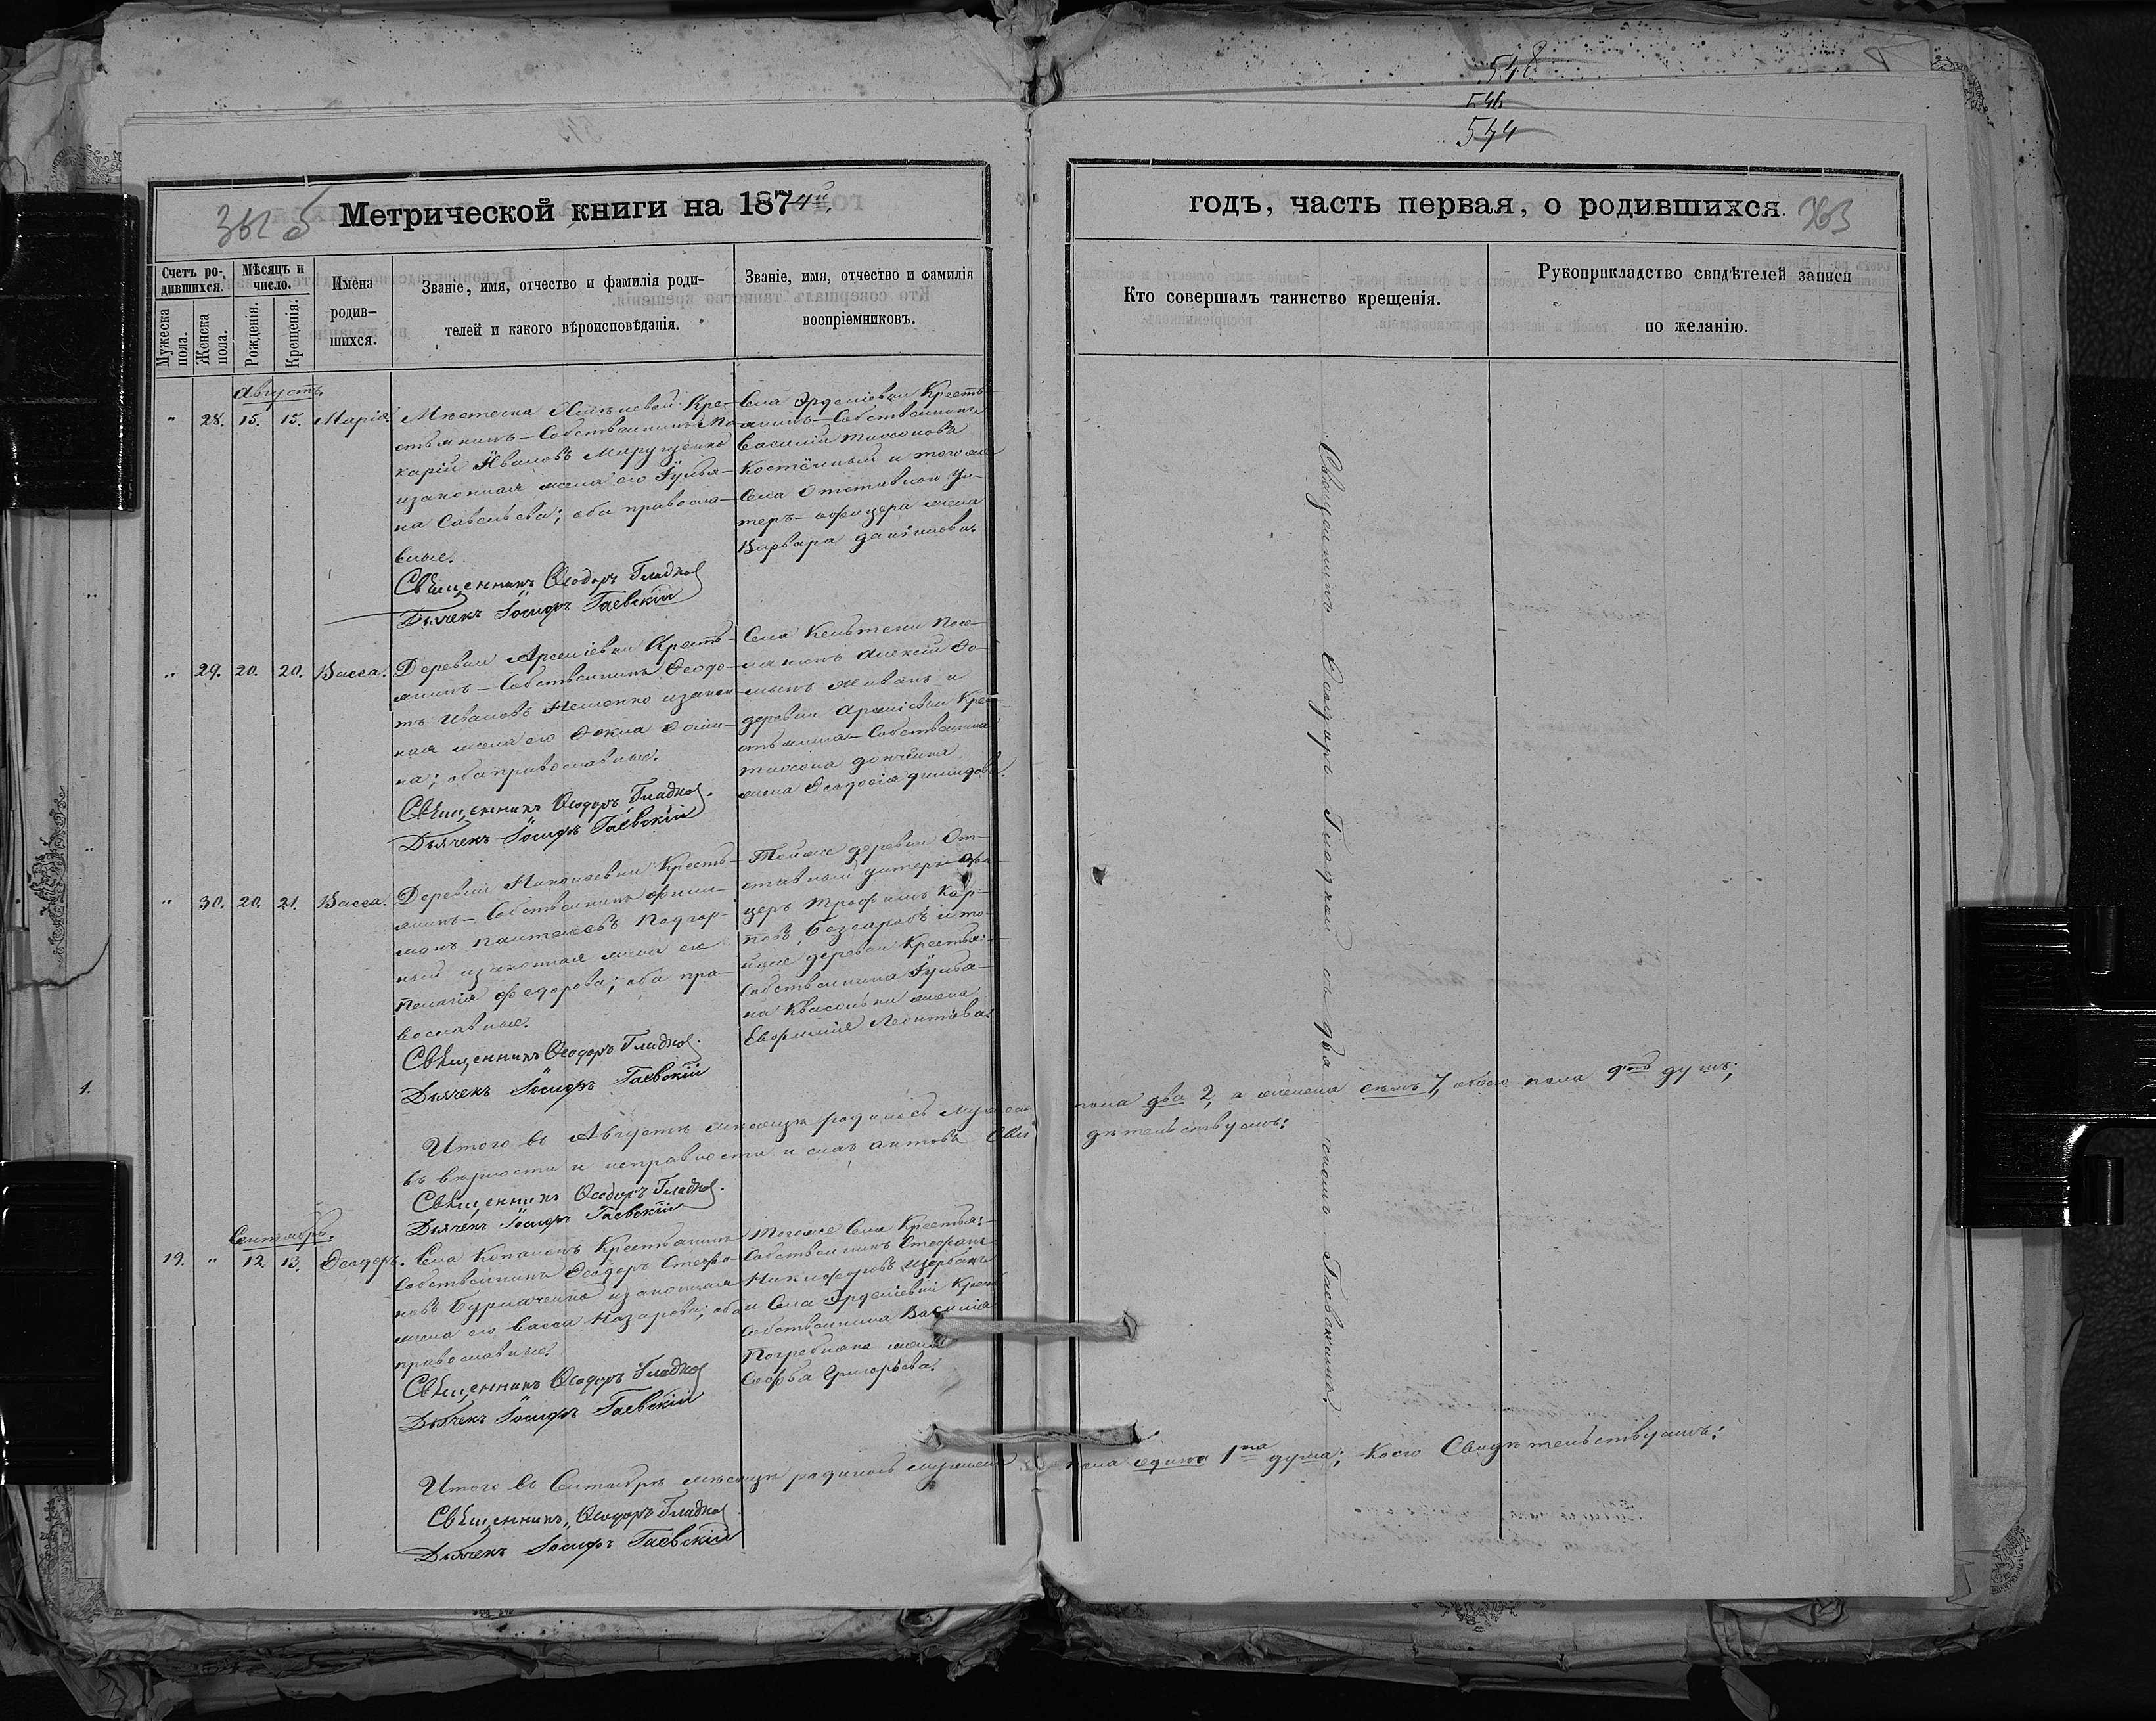 548
546
544
Метрической книги на 1874й
годъ, часть первая, о родившихся.
363
Счетъ родившихся.
Мужеска пола.
Женска пола.
Мѣсяцъ и число.
Рожденія.
Крещенія.
Имена родившихся.
Званіе, имя, отчество и фамилія родителей и какого вѣроисповѣданія.
Званіе, имя, отчество и фамилія воспріемниковъ.
Кто совершалъ таинство крещенія.
Рукоприкладство свидѣтелей записи по желанію.
Августъ.
" 28. 15. 15. Марія.
Мѣстечка Кре-
стьянинъ-Собственникъ Ма-
карій Ивановъ Марущенко
и законная жена его Іуліа-
на Савельева; оба правосла-
вные.
Священникъ Ѳеодоръ Гладкой
Дьячекъ Іосифъ Гаевскій
Села Ерделіевки Кресть-
янинъ-Собственникъ
Василій
и того же
Села Отставного Ун-
теръ-офицера жена
Варвара Данілова.
" 29. 20. 20. Васса.
Деревни Арсеніевки Кресть-
янинъ-Собственникъ Ѳеодо-
тъ Ивановъ и закон-
ная жена его Ѳекла Ѳоми-
на; оба православные.
Священникъ Ѳеодоръ Гладкой.
Дьячекъ Іосифъ Гаевскій
Села Посе-
лянинъ Алексій Ѳо-
минъ и
деревни Арсеніевки Кре-
стьянина-Собственника
жена Ѳеодосія
" 30. 20. 21. Васса.
Деревни Николаевки Кресть-
янинъ-Собственникъ Фили-
монъ Пантелеевъ Подгор-
ный и законная жена его
Пелагія Федорова; оба пра-
вославные.
Священникъ Ѳеодоръ Гладкой.
Дьячекъ Іосифъ Гаевскій
Той же деревни От-
ставный унтеръ-офи-
церъ Трофимъ Кар-
повъ Безсарабъ и то-
й же деревни Крестья:-
Собственника Іуліа-
на жена
Евфимія Леонтіева.
Итого въ Августѣ мѣсяцѣ родилось мужеска пола два 2, а женска семь 7, обоего пола 9ть душъ;
въ вѣрности и исправности и сихъ актовъ Свидѣтельствуемъ:
Священникъ Ѳеодоръ Гладкой.
Дьячекъ Іосифъ Гаевскій
Сентябрь.
19. " 12. 13. Ѳеодоръ.
Села Крестьянинъ
Собственникъ Ѳеодоръ Стефа-
новъ Бурлаченко и законная
жена его Васса Назарова; оба
православные.
Священникъ Ѳеодоръ Гладкой
Дьячекъ Іосифъ Гаевскій
Того же Села Крестья:-
Собственникъ Стефанъ
Никифоровъ Щербакъ
и Села Ерделіевки Кресть
Собственника Василія
Погребняка жена
Григорьева.
Итого въ Сентябрѣ мѣсяцѣ родилось мужеска пола едина 1на душа; Коего Свидѣтельствуемъ:
Священникъ Ѳеодоръ Гладкой
Дьячекъ Іосифъ Гаевскій
Священникъ Ѳеодоръ Гладкой съ Гаевскимъ.
1.